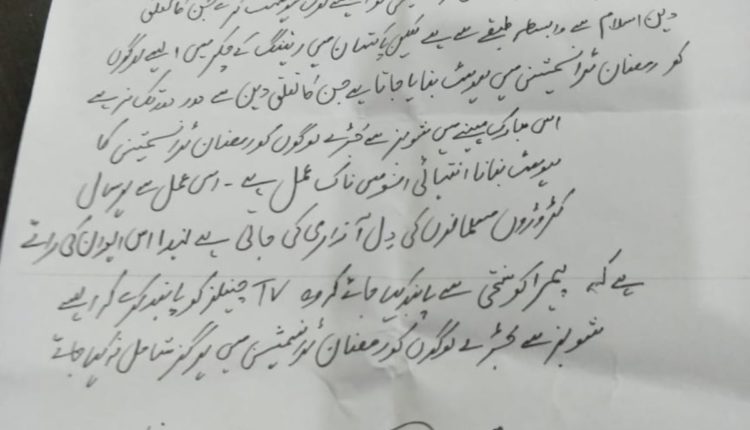 دین اسلام سے وابسطہ طبقے سے ہے لیکن پاکستان میں ریٹنگ کے چکر میں ایسے لوگوں
کو رمضان ٹرانسمیشن میں ہوسٹ بنایا جاتا ہے جن کا تعلق دین سے دور دور تک نہ ہے
اس مبارک مہینے میں شوبز سے جُڑے لوگوں کو رمضان ٹرانسمیشن کا
ہوسٹ بنانا انتہائی افسوس ناک عمل ہے - اس عمل سے ہر سال
کڑوڑوں مسلمانوں کی دِل آزاری کی جاتی ہے لہذا اس ایوان کی رائے
ہے کہ پیمرا کو سختی سے پابند کیا جائے کہ وہ TV چینلز کو پابند کرے کہ ایسے
شوبز سے جُڑے لوگوں کو رمضان ٹرانسمیشن میں ہرگز شامل نہ کیا جائے